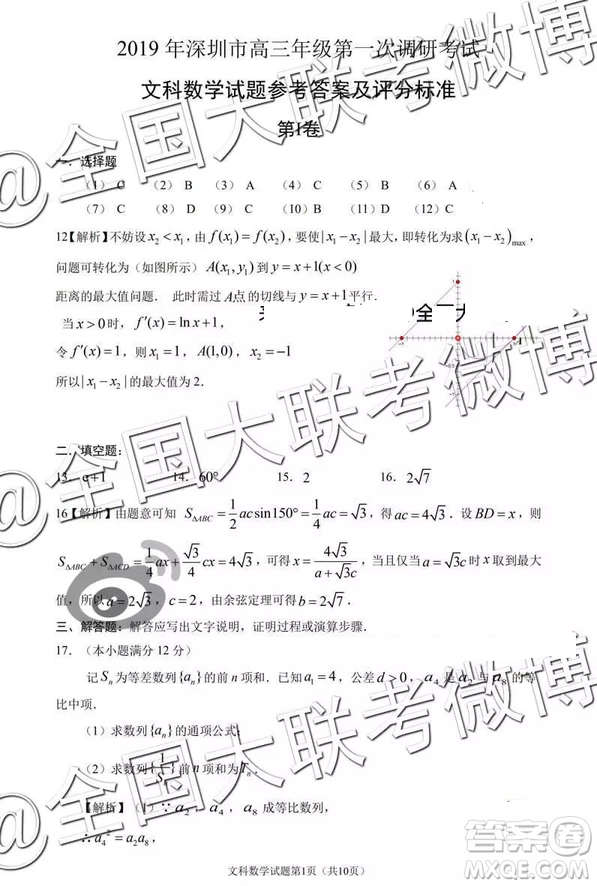 2019 年深圳市高三年级第一次调研考试
文科数学试题参考答案及评分标准
第I卷
一．选择题
（1） C （2） B （3） A （4） C （5） B （6） A
（7） C （8） D （9） C （10）B （11）D （12）C
12【解析】不妨设 x₂ < x₁，由 f(x₁) = f(x₂)，要使 | x₁ − x₂ | 最大，即转化为求 (x₁ − x₂)max，
问题可转化为（如图所示） A(x₁, y₁) 到 y = x + 1(x < 0)
距离的最大值问题． 此时需过 A点的切线与 y = x + 1 平行．
当 x > 0 时， f′(x) = ln x + 1，
令 f′(x) = 1， 则 x₁ = 1， A(1,0)， x₂ = −1
所以 | x₁ − x₂ | 的最大值为 2．
二．填空题：
13． e + 1 14．60° 15．2 16．2√7
16【解析】由题意可知 S△ABC = 1/2 ac sin150° = 1/4 ac = √3，得 ac = 4√3．设 BD = x，则
S△ABC + S△ACD = 1/4 ax + √3/4 cx = 4√3，可得 x = 4√3/(a + √3c)，当且仅当 a = √3c 时 x 取到最大
值，所以 a = 2√3，c = 2，由余弦定理可得 b = 2√7．
三、解答题：解答应写出文字说明，证明过程或演算步骤．
17．（本小题满分 12 分）
记 Sₙ 为等差数列 {aₙ} 的前 n 项和．已知 a₁ = 4，公差 d > 0， a₄ 是 a₂ 与 a₈ 的等
比中项．
（1）求数列 {aₙ} 的通项公式；
（2）求数列 {1/Sₙ} 前 n 项和为 Tₙ．
【解析】（1）∵ a₂，a₄，a₈ 成等比数列，
∴ a₄² = a₂a₈，
文科数学试题第1页（共10页）
@全国大联考微博
@全国大联考微博
@全国大联考微博
答案圈
MXQE.COM